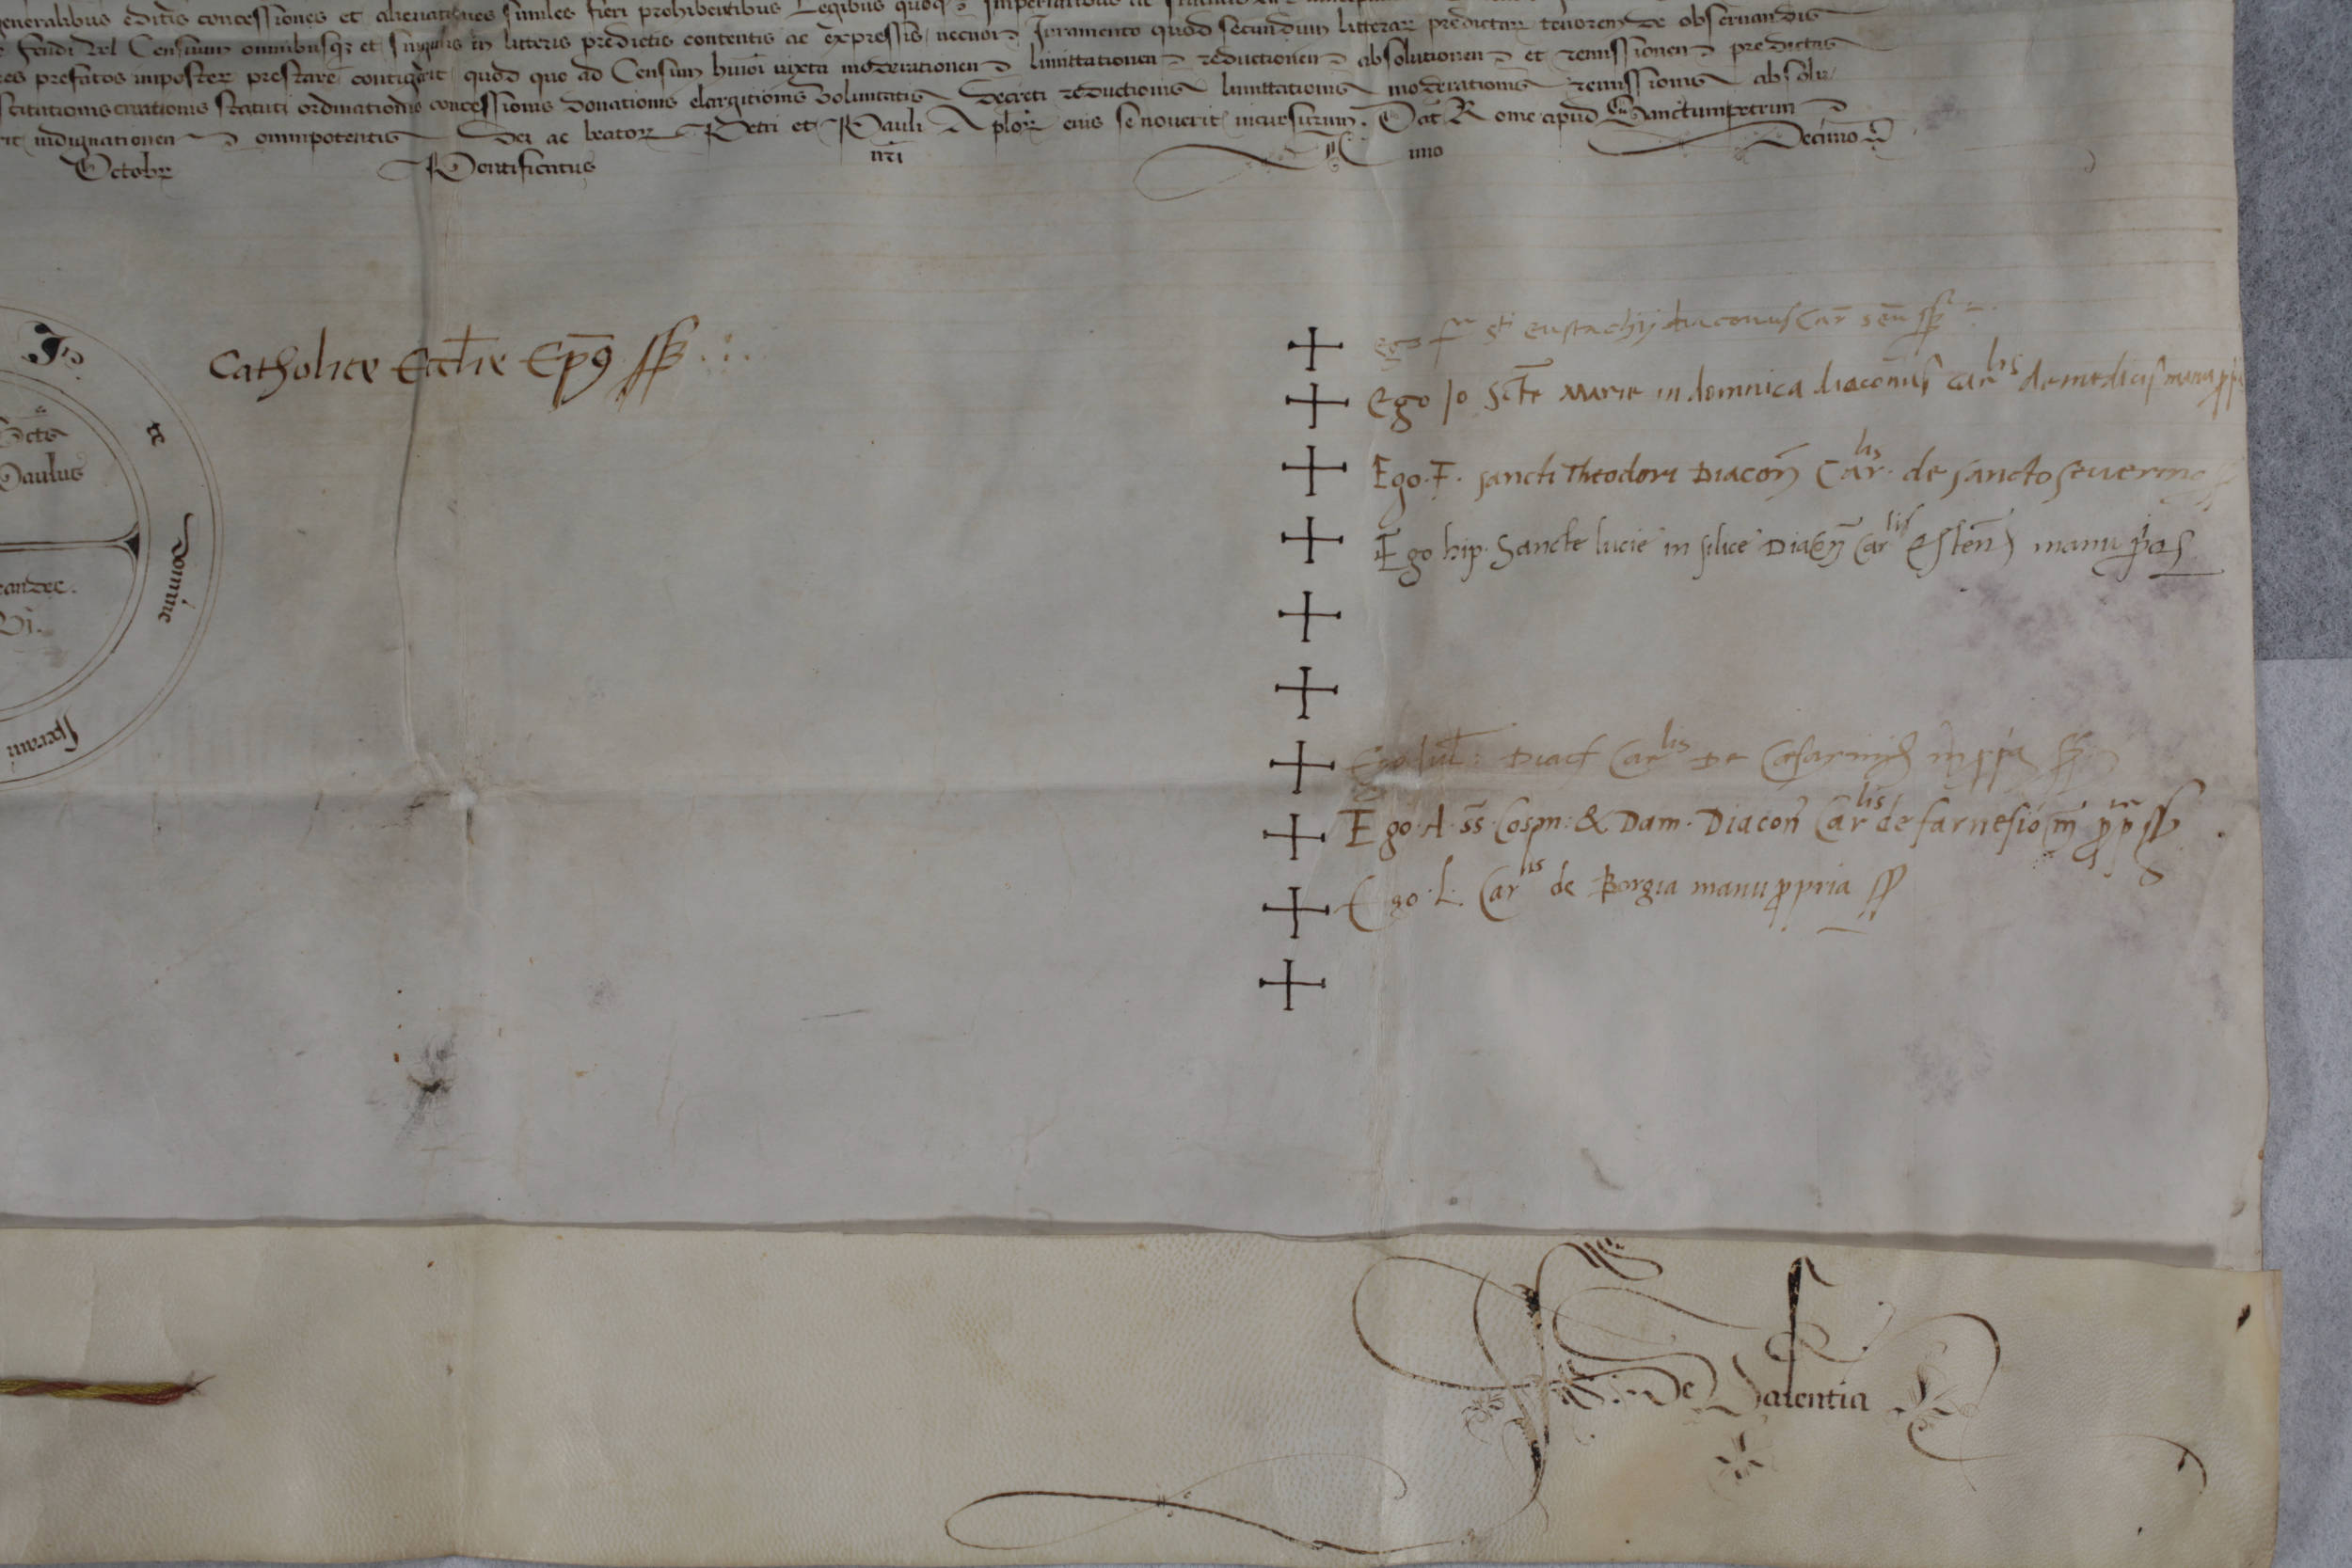 generalibus editis concessiones et alienationes similes fieri prohibentibus Legibus quoq
feudi vel Censuum omnibusq; et singulis in litteris predictis contentis ac expressis necnon Iuramento quod secundum litterar predictar tenorem de observandis
es prefatos imposter prestare contigerit quod quo ad Censum huiōi iuxta moderationem limittationem reductionem absolutionem et remissionem predictas
scitationis creationis statuti ordinationis concessionis donationis elargitionis voluntatis decreti reductionis limittationis moderationis remissionis absolu
indignationem omnipotentis Dei ac beator Petri et Pauli Aplor eius se noverit incursurum. Dat Rome apud Sanctumpetrum
Decimo
Octobr Pontificatus nr̄i
a
Domine
Speravi
Paulus
Catholice Eccl̄ie Ep̄s ss
Ego fr sti eustachij diaconus Car sen̄ ss
Ego Jo Scte Marie in domnica diaconus carlis de medicis manu pp
Ego F. sancti Theodori Diacon̄ Carlis de sancto severino
Ego hip. Sancte lucie in silice Diacn̄ Carlis Esten̄ manu
Ego Diac Carlis De Cesarinis
Ego A ss Cosm: & Dam. Diacon̄ Carlis de farnesio m̄ ss
Ego L. Carlis de Borgia manu ppria ss
De Valentia